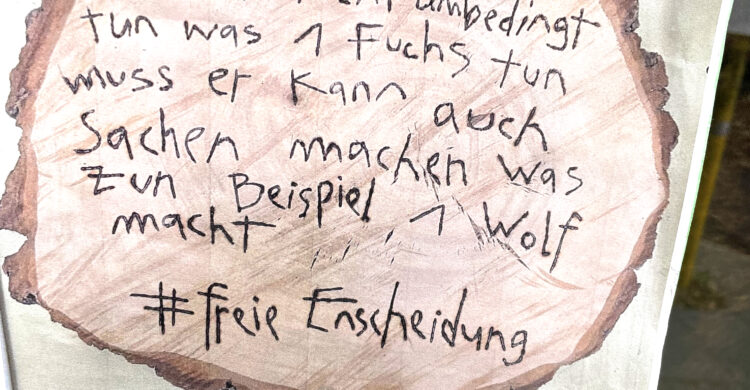 umbedingt
tun was 1 Fuchs tun
muss er kann auch
Sachen machen was
zun Beispiel 1 Wolf
macht
#freie Enscheidung